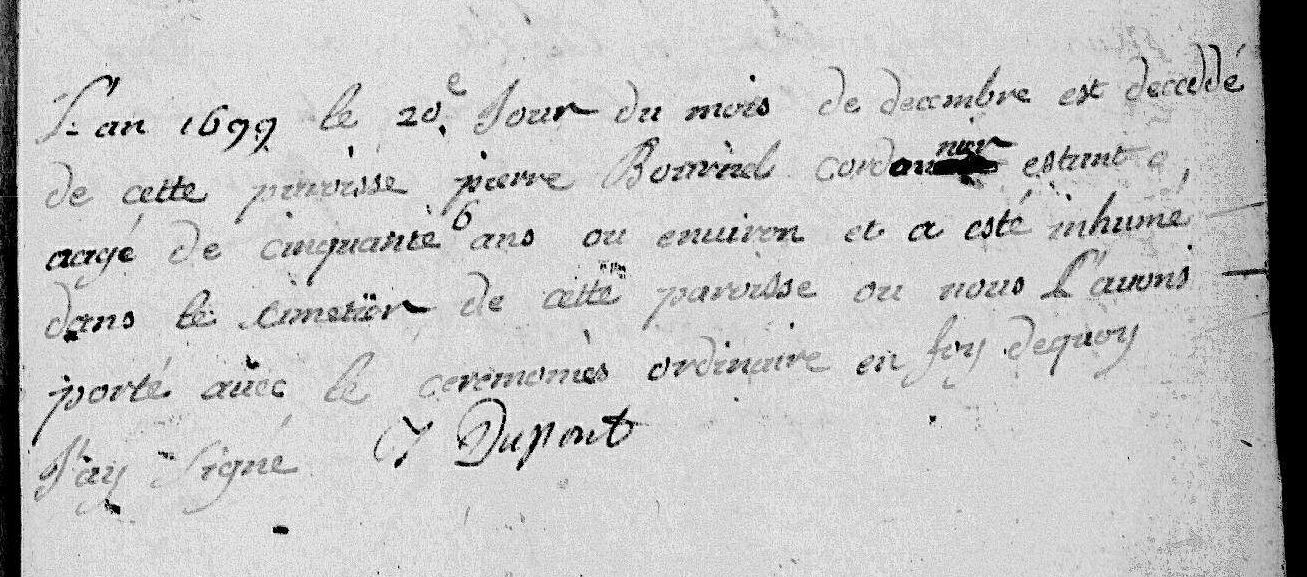 L'an 1699 le 20e Jour du mois de decembre est deceddé
de cette paroisse pierre cordonnier estant
aagé de cinquante 6 ans ou enuiron et a esté inhumé
dans le Cimetiör de cette paroisse ou nous L'auons
porté auec le ceremonies ordinaire en foy dequoy
J'ay Signé J Dupont